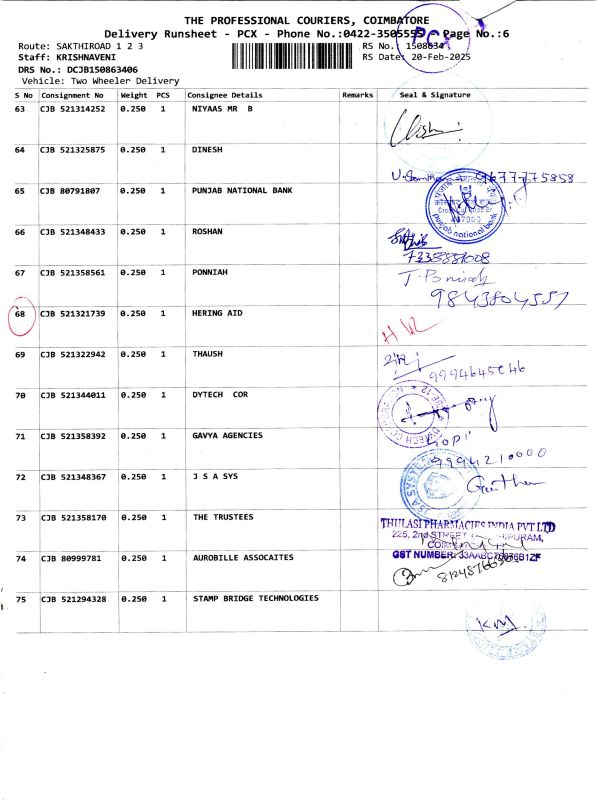 THE PROFESSIONAL COURIERS, COIMBATORE
Delivery Runsheet - PCX - Phone No.:0422-3505555 Page No.:6
PCX
Route: SAKTHIROAD 1 2 3 RS No. 1508634
Staff: KRISHNAVENI RS Date: 20-Feb-2025
DRS No.: DCJB150863406
Vehicle: Two Wheeler Delivery
S No Consignment No Weight PCS Consignee Details Remarks Seal & Signature
63 CJB 521314252 0.250 1 NIYAAS MR B
64 CJB 521325875 0.250 1 DINESH
9677775858
65 CJB 80791807 0.250 1 PUNJAB NATIONAL BANK
punjab national bank
66 CJB 521348433 0.250 1 ROSHAN
67 CJB 521358561 0.250 1 PONNIAH
T. Ponniah
9843804557
68 CJB 521321739 0.250 1 HERING AID
69 CJB 521322942 0.250 1 THAUSH
9994645646
70 CJB 521344011 0.250 1 DYTECH COR
71 CJB 521358392 0.250 1 GAVYA AGENCIES
GOPI
9994210000
72 CJB 521348367 0.250 1 J S A SYS
73 CJB 521358170 0.250 1 THE TRUSTEES
THULASI PHARMACIES INDIA PVT LTD
225, 2nd STREET
74 CJB 80999781 0.250 1 AUROBILLE ASSOCAITES
GST NUMBER:
75 CJB 521294328 0.250 1 STAMP BRIDGE TECHNOLOGIES
KM